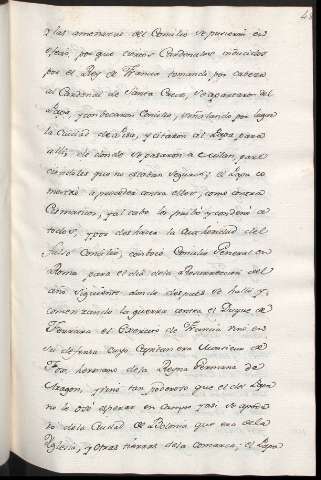 48
y las amenazas del Concilio se pusieron en
efecto, por que ciertos Cardenales inducidos
por el Rey de Francia tomando por cabeza
al Cardenal de Santa Cruz, se apartaron del
Papa, y convocaron Concilio, señalando por lugar
la Ciudad de Pisa, y citaron al Papa para
alli, de donde se pasaron a Milan, pare
ciendoles que no estaban seguros; el Papa co
menzó a proceder contra ellos, como contra
Cismaticos, y al cabo los privó y condenó a
todos, y por deshacer la authoridad del
falso Concilio, convocó Concilio General en
Roma para el dia de la Resurreccion del
año siguiente donde despues se halló y
comenzando la guerra contra el Duque de
Ferrara el Exercito de Francia vino en
su defensa cuyo Capitan era Monsieur de
Fox, hermano de la Reyna Germana de
Aragon, y vino tan poderoso que el del Papa
no le osó esperar en campo y asi se apode
ró de la Ciudad de Bolonia que era de la
Iglesia, y otras tierras de la comarca; el Papa